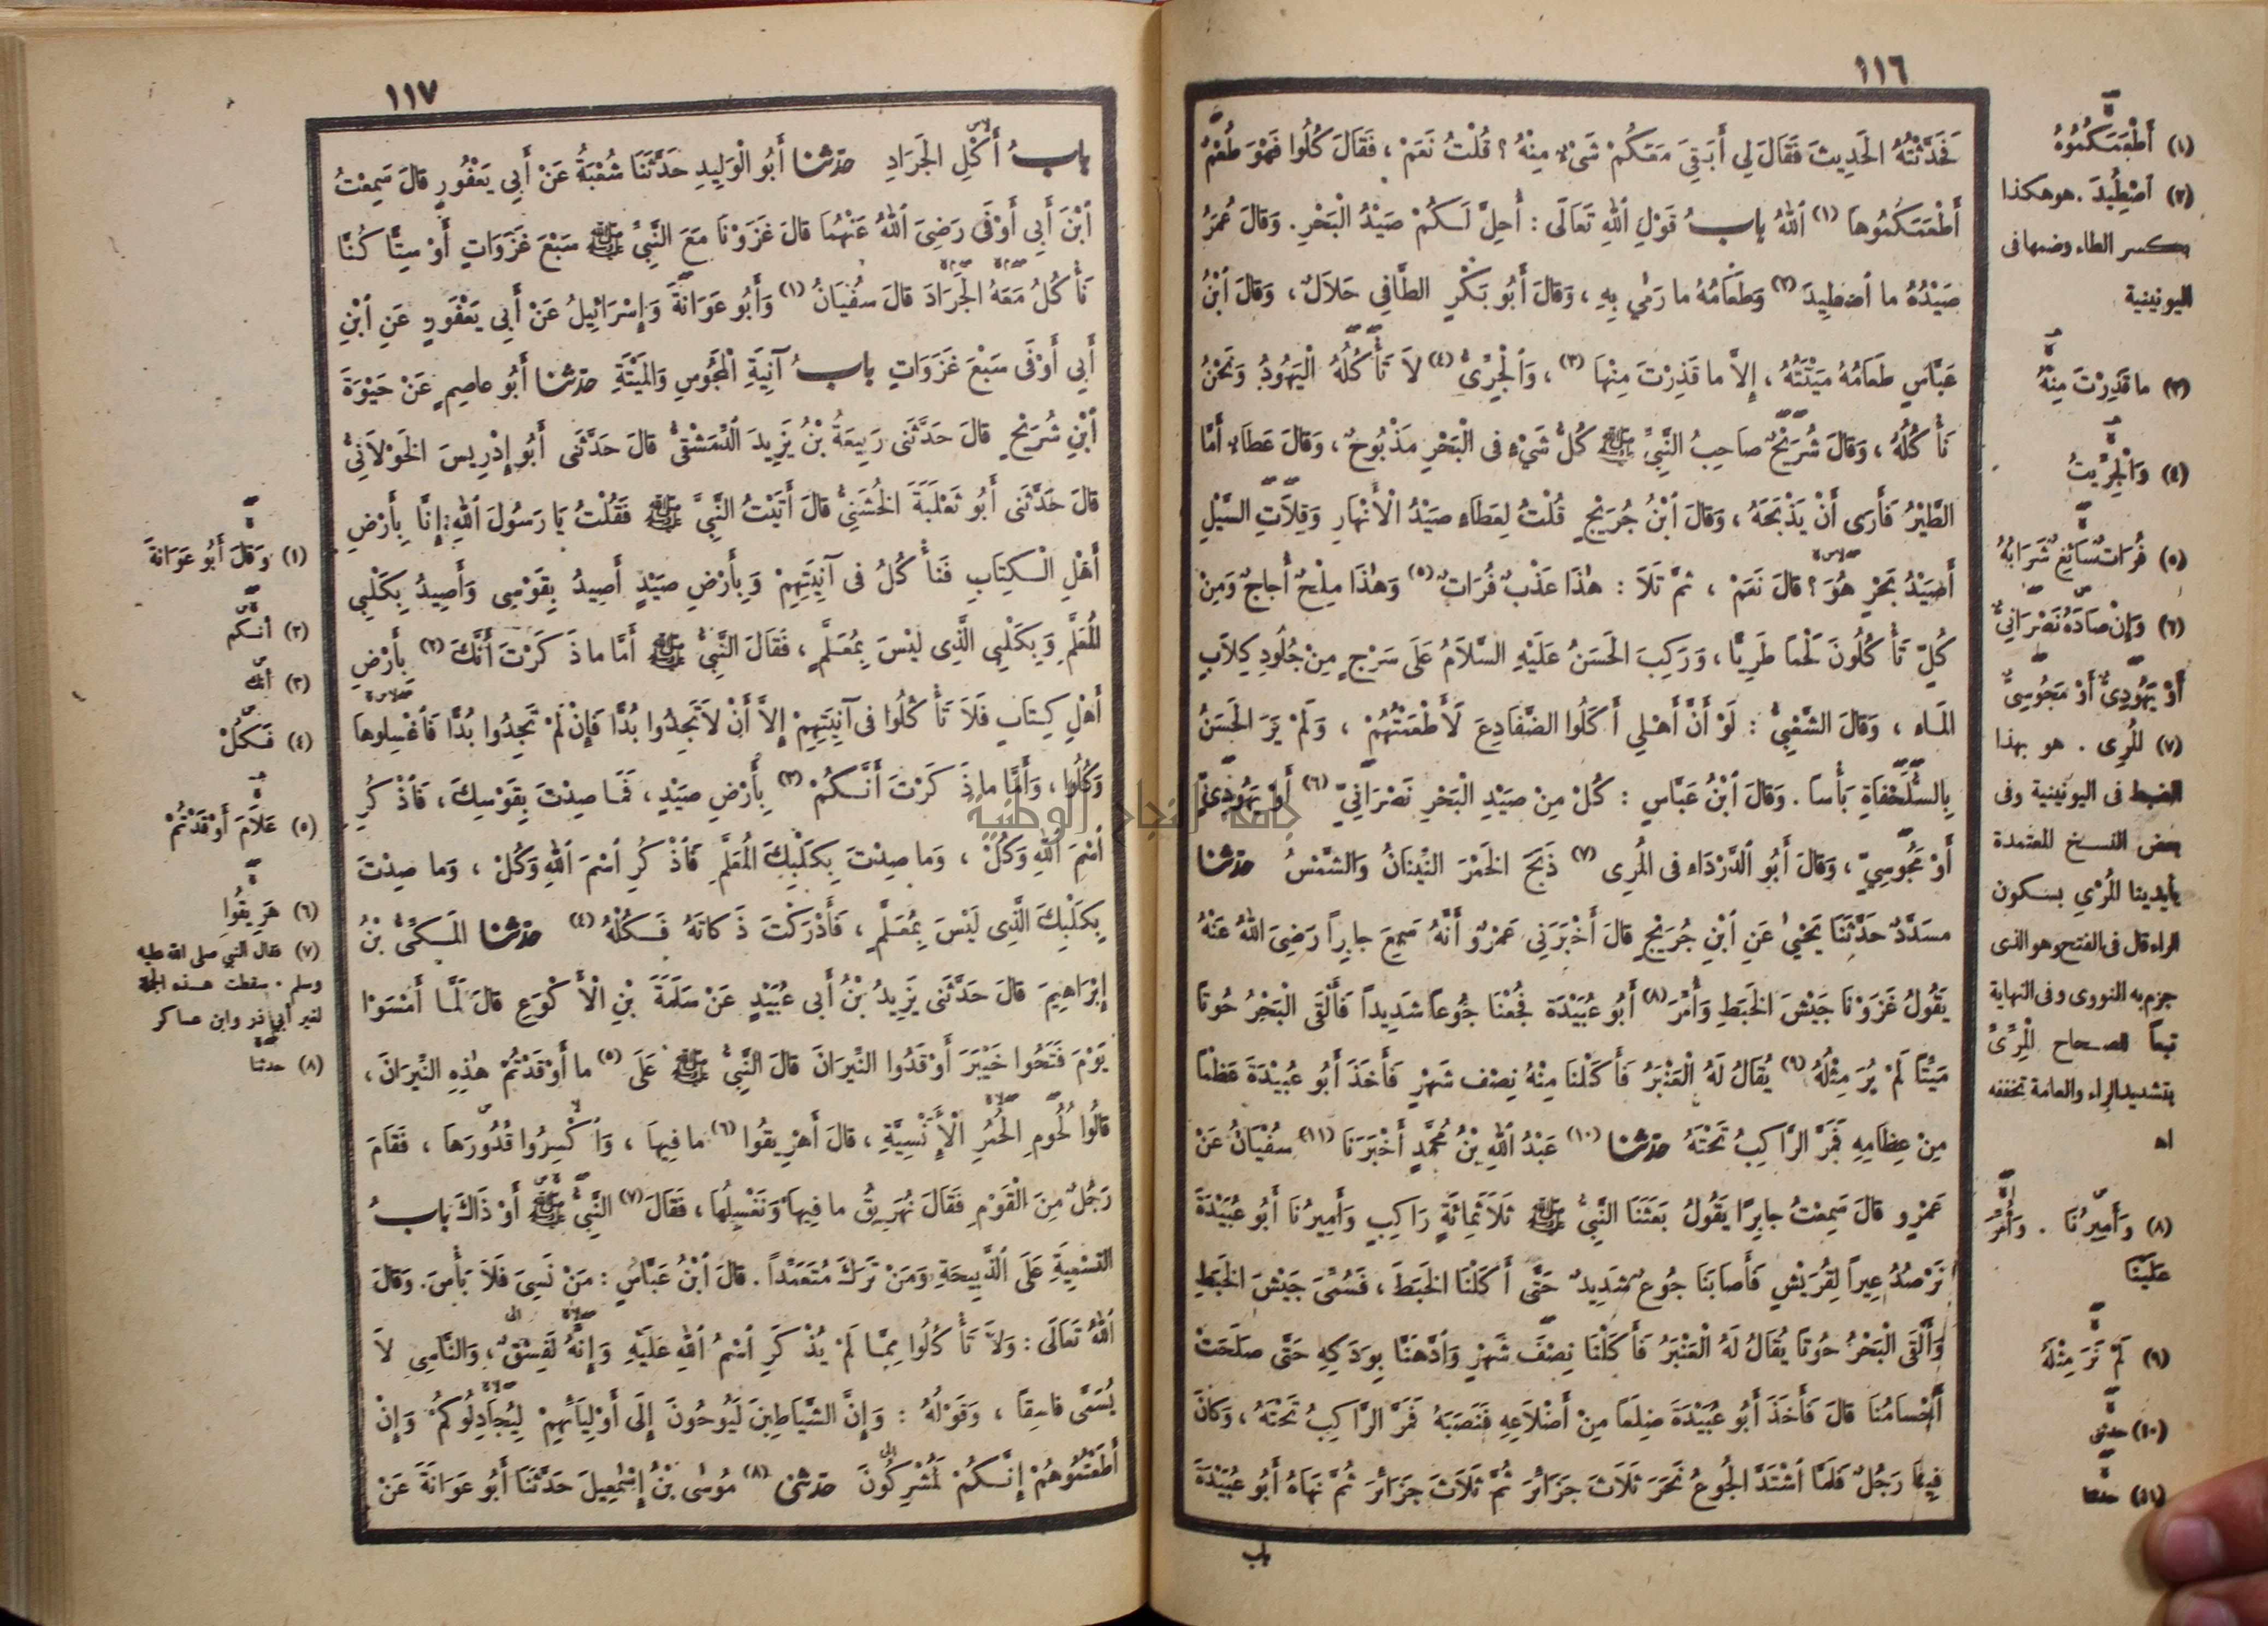 ١١٦
فَحَدَّثْتُهُ الْحَدِيثَ فَقَالَ لِي أَبَقِيَ مَعَكُمْ شَىْءٌ مِنْهُ ؟ قُلْتُ نَعَمْ ، فَقَالَ كُلُوا فَهْوَ طُعْمٌ
أَطْعَمَكُمُوهَا (١) اللهُ بابُ قَوْلِ اللهِ تَعَالَى : أُحِلَّ لَكُمْ صَيْدُ الْبَحْرِ . وَقَالَ عُمَرُ
صَيْدُهُ ما اصْطِيدَ (٢) وَطَعَامُهُ ما رَمَى بِهِ ، وَقَالَ أَبُو بَكْرٍ الطَّافِي حَلاَلٌ ، وَقَالَ ابْنُ
عَبَّاسٍ طَعَامُهُ مَيْتَتُهُ ، إِلاَّ ما قَذِرْتَ مِنْهَا (٣) ، وَالْجِرِّىُّ (٤) لاَ تَأْكُلُهُ الْيَهُودُ وَنَحْنُ
نَأْكُلُهُ ، وَقَالَ شُرَيْحٌ صَاحِبُ النَّبِيِّ ﷺ كُلُّ شَيْءٍ فى الْبَحْرِ مَذْبُوحٌ ، وَقَالَ عَطَاءٌ أَمَّا
الطَّيْرُ فَأَرَى أَنْ يَذْبَحَهُ ، وَقَالَ ابْنُ جُرَيْجٍ قُلْتُ لِعَطَاءٍ صَيْدُ الْأَنْهَارِ وَقِلاَتِ السَّيْلِ
أَصَيْدُ بَحْرٍ هُوَ ؟ قَالَ نَعَمْ ، ثُمَّ تَلاَ : هٰذَا عَذْبٌ فُرَاتٌ (٥) وَهٰذَا مِلْحٌ أُجَاجٌ وَمِنْ
كُلٍّ تَأْكُلُونَ لَحْمًا طَرِيًّا ، وَرَكِبَ الْحَسَنُ عَلَيْهِ السَّلاَمُ عَلَى سَرْجٍ مِنْ جُلُودِ كِلاَبِ
الْمَاءِ ، وَقَالَ الشَّعْبِىُّ : لَوْ أَنَّ أَهْلِي أَكَلُوا الضَّفَادِعَ لَأَطْعَمْتُهُمْ ، وَلَمْ يَرَ الْحَسَنُ
بِالسُّلَحْفَاةِ بَأْسًا . وَقَالَ ابْنُ عَبَّاسٍ : كُلْ مِنْ صَيْدِ الْبَحْرِ نَصْرَانِيٍّ (٦) أَوْ يَهُودِيٍّ
أَوْ مَجُوسِيٍّ ، وَقَالَ أَبُو الدَّرْدَاءِ فى الْمُرِى (٧) ذَبَحَ الْخَمْرَ النِّينَانُ وَالشَّمْسُ حدثنا
مُسَدَّدٌ حَدَّثَنَا يَحْيٰى عَنِ ابْنِ جُرَيْجٍ قَالَ أَخْبَرَنِي عَمْرٌو أَنَّهُ سَمِعَ جَابِراً رَضِيَ اللهُ عَنْهُ
يَقُولُ غَزَوْنَا جَيْشَ الْخَبَطِ وَأُمِّرَ (٨) أَبُو عُبَيْدَةَ فَجُعْنَا جُوعاً شَدِيداً فَأَلْقَى الْبَحْرُ حُوتًا
مَيِّتًا لَمْ يُرَ مِثْلُهُ (٩) يُقَالُ لَهُ الْعَنْبَرُ فَأَكَلْنَا مِنْهُ نِصْفَ شَهْرٍ فَأَخَذَ أَبُو عُبَيْدَةَ عَظْمًا
مِنْ عِظَامِهِ فَمَرَّ الرَّاكِبُ تَحْتَهُ حدثنا (١٠) عَبْدُ اللهِ بْنُ مُحَمَّدٍ أَخْبَرَنَا (١١) سُفْيَانُ عَنْ
عَمْرٍو قَالَ سَمِعْتُ جَابِرًا يَقُولُ بَعَثَنَا النَّبِيُّ ﷺ ثَلاَثَمِائَةِ رَاكِبٍ وَأَمِيرُنَا أَبُو عُبَيْدَةَ
نَرْصُدُ عِيراً لِقُرَيْشٍ فَأَصَابَنَا جُوعٌ شَدِيدٌ حَتَّى أَكَلْنَا الْخَبَطَ ، فَسُمِّىَ جَيْشَ الْخَبَطِ
وَأَلْقَى الْبَحْرُ حُوتًا يُقَالُ لَهُ الْعَنْبَرُ فَأَكَلْنَا نِصْفَ شَهْرٍ وَادَّهَنَّا بِوَدَكِهِ حَتَّى صَلَحَتْ
أَجْسَامُنَا قَالَ فَأَخَذَ أَبُو عُبَيْدَةَ ضِلَعًا مِنْ أَضْلاَعِهِ فَنَصَبَهُ فَمَرَّ الرَّاكِبُ تَحْتَهُ ، وَكَانَ
فِينَا رَجُلٌ فَلَمَّا اشْتَدَّ الْجُوعُ نَحَرَ ثَلاَثَ جَزَائِرَ ثُمَّ ثَلاَثَ جَزَائِرَ ثُمَّ نَهَاهُ أَبُو عُبَيْدَةَ
باب
(١) أَطْعَمَكُمُوهُ
(٢) اصْطِيدَ . هو هكذا
بكسر الطاء وضمها فى
اليونينية
(٣) ما قَذِرْتَ مِنْهُ
(٤) وَالْجِرِّيتُ
(٥) فُرَاتٌ سَائِغٌ شَرَابُهُ
(٦) وَإِنْ صَادَهُ نَصْرَانِيٌّ
أَوْ يَهُودِيٌّ أَوْ مَجُوسِيٌّ
(٧) الْمُرِى . هو بهذا
الضبط فى اليونينية وفى
بعض النسخ المعتمدة
بأيدينا الْمُرْيِ بسكون
الراء قال فى الفتح وهو الذى
جزم به النووى وفى النهاية
تبعاً الصحاح الْمُرِّىُّ
بتشديد الراء والعامة تخففه
اه
(٨) وَأَمِيرُنَا . وَأُمِّرَ
عَلَيْنَا
(٩) لَمْ نَرَ مِثْلَهُ
(١٠) حدثنى
(١١) حدثنا
١١٧
بابُ أَكْلِ الْجَرَادِ حدثنا أَبُو الْوَلِيدِ حَدَّثَنَا شُعْبَةُ عَنْ أَبِي يَعْفُورٍ قَالَ سَمِعْتُ
ابْنَ أَبِي أَوْفَى رَضِيَ اللهُ عَنْهُمَا قَالَ غَزَوْنَا مَعَ النَّبِيِّ ﷺ سَبْعَ غَزَوَاتٍ أَوْ سِتًّا كُنَّا
نَأْكُلُ مَعَهُ الْجَرَادَ قَالَ سُفْيَانُ (١) وَأَبُو عَوَانَةَ وَإِسْرَائِيلُ عَنْ أَبِي يَعْفُورٍ عَنِ ابْنِ
أَبِي أَوْفَى سَبْعَ غَزَوَاتٍ بابُ آنِيَةِ الْمَجُوسِ وَالْمَيْتَةِ حدثنا أَبُو عاصِمٍ عَنْ حَيْوَةَ
ابْنِ شُرَيْحٍ قَالَ حَدَّثَنِى رَبِيعَةُ بْنُ يَزِيدَ الدِّمَشْقِىُّ قَالَ حَدَّثَنِى أَبُو إِدْرِيسَ الْخَوْلاَنِىُّ
قَالَ حَدَّثَنِى أَبُو ثَعْلَبَةَ الْخُشَنِىُّ قَالَ أَتَيْتُ النَّبِيَّ ﷺ فَقُلْتُ يَا رَسُولَ اللهِ إِنَّا بِأَرْضِ
أَهْلِ الْكِتَابِ فَنَأْكُلُ فى آنِيَتِهِمْ وَبِأَرْضِ صَيْدٍ أَصِيدُ بِقَوْسِى وَأَصِيدُ بِكَلْبِي
الْمُعَلَّمِ وَبِكَلْبِى الَّذِى لَيْسَ بِمُعَلَّمٍ ، فَقَالَ النَّبِىُّ ﷺ أَمَّا ما ذَكَرْتَ أَنَّكَ (٢) بِأَرْضِ
أَهْلِ كِتَابٍ فَلاَ تَأْكُلُوا فى آنِيَتِهِمْ إِلاَّ أَنْ لاَ تَجِدُوا بُدًّا فَإِنْ لَمْ تَجِدُوا بُدًّا فَاغْسِلُوهَا
وَكُلُوا ، وَأَمَّا ما ذَكَرْتَ أَنَّكُمْ (٣) بِأَرْضِ صَيْدٍ ، فَمَا صِدْتَ بِقَوْسِكَ ، فَاذْكُرِ
اسْمَ اللهِ وَكُلْ ، وَما صِدْتَ بِكَلْبِكَ الْمُعَلَّمِ فَاذْكُرِ اسْمَ اللهِ وَكُلْ ، وَما صِدْتَ
بِكَلْبِكَ الَّذِى لَيْسَ بِمُعَلَّمٍ ، فَأَدْرَكْتَ ذَكاتَهُ فَكُلْهُ (٤) حدثنا الْمَكِّىُّ بْنُ
إِبْرَاهِيمَ قَالَ حَدَّثَنِى يَزِيدُ بْنُ أَبِى عُبَيْدٍ عَنْ سَلَمَةَ بْنِ الْأَكْوَعِ قَالَ لَمَّا أَمْسَوْا
يَوْمَ فَتَحُوا خَيْبَرَ أَوْقَدُوا النِّيرَانَ قَالَ النَّبِيُّ ﷺ عَلَى (٥) ما أَوْقَدْتُمْ هٰذِهِ النِّيرَانَ ،
قَالُوا لُحُومِ الْحُمُرِ الْأَنَسِيَّةِ ، قَالَ أَهْرِيقُوا (٦) ما فِيهَا ، وَاكْسِرُوا قُدُورَهَا ، فَقَامَ
رَجُلٌ مِنَ الْقَوْمِ فَقَالَ نُهَرِيقُ ما فِيهَا وَنَغْسِلُهَا ، فَقَالَ (٧) النَّبِىُّ ﷺ أَوْ ذَاكَ بابُ
التَّسْمِيَةِ عَلَى الذَّبِيحَةِ وَمَنْ تَرَكَ مُتَعَمِّداً . قَالَ ابْنُ عَبَّاسٍ : مَنْ نَسِيَ فَلاَ بَأْسَ . وَقَالَ
اللهُ تَعَالَى : وَلاَ تَأْكُلُوا مِمَّا لَمْ يُذْكَرِ اسْمُ اللهِ عَلَيْهِ وَإِنَّهُ لَفِسْقٌ ، وَالنَّاسِى لاَ
يُسَمَّى فَاسِقًا ، وَقَوْلُهُ : وَإِنَّ الشَّيَاطِينَ لَيُوحُونَ إِلَى أَوْلِيَائِهِمْ لِيُجَادِلُوكُمْ وَإِنْ
أَطَعْتُمُوهُمْ إِنَّكُمْ لَمُشْرِكُونَ حدثنى (٨) مُوسٰى بْنُ إِسْمٰعِيلَ حَدَّثَنَا أَبُو عَوَانَةَ عَنْ
(١) وَقَالَ أَبُو عَوَانَةَ
(٢) أَنَّكُمْ
(٣) أَنَّكَ
(٤) فَكُلْ
(٥) عَلاَمَ أَوْقَدْتُمْ
(٦) هَرِيقُوا
(٧) فقال النبي صلى الله عليه
وسلم . سقطت هذه الجملة
لغير أبي ذر وابن عساكر
(٨) حدثنا
جامعة النجاح الوطنية